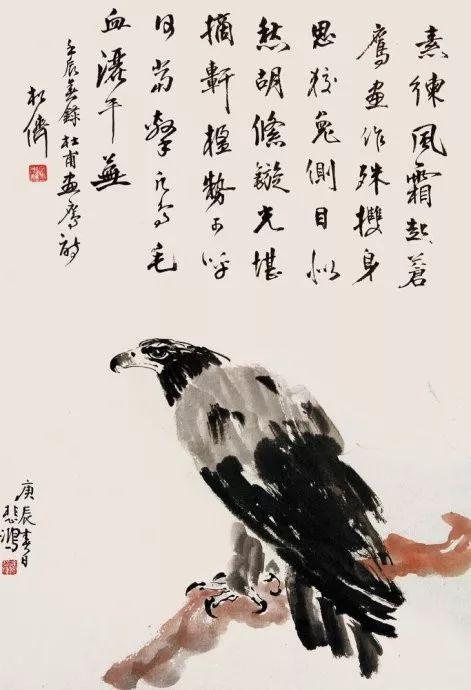 素練風霜起蒼
鷹畫作殊㩳身
思狡兔側目似
愁胡絛鏇光堪
摘軒楹勢可呼
何當擊凡鳥毛
血灑平蕪
壬辰錄杜甫畫鷹詩
庚辰春日
悲鴻